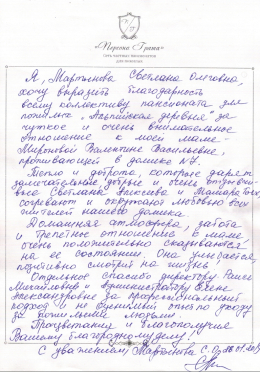 «Персона Грата»
СЕТЬ ЧАСТНЫХ ПАНСИОНАТОВ
ДЛЯ ПОЖИЛЫХ
Я, Мартынова Светлана Олеговна,
хочу выразить благодарность
всему коллективу пансионата для
пожилых "Альпийская деревня" за
чуткое и очень внимательное
отношение к моей маме -
Мироновой Валентине Васильевне,
проживающей в домике №7.
Тепло и доброта, которые дарят
замечательные, добрые и очень
Светлана Алексеевна и Тамара
согревают и окружают любовью всех
жителей нашего домика.
Домашняя атмосфера, забота
и трепетное отношение к маме
очень положительно сказываются
на ее состоянии. Она улыбается,
позитивно смотрит на жизнь.
Отдельное спасибо директору
Михайловне и администратору Елене
Александровне за профессиональный
подход и неоценимый опыт по уходу
за пожилыми людьми.
Процветания и благополучия
Вашему благородному делу!
С уважением, Мартынова С.О.